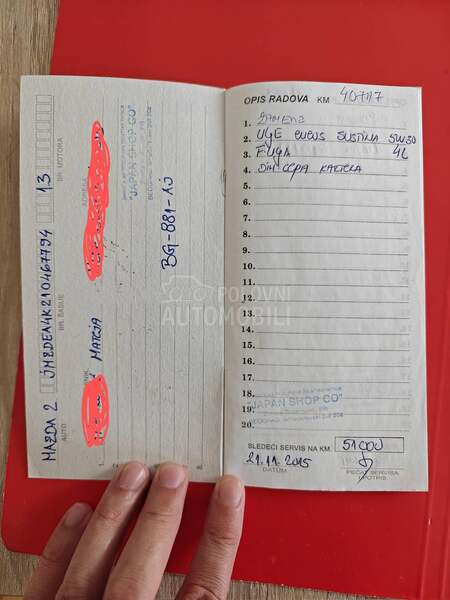 MAZDA 2 JMZDEN4K210467794 1.3
AUTO BR. ŠASIJE BR. MOTORA
MATEJA
BG-881-XJ
"JAPAN SHOP CO"
OPIS RADOVA KM 40717
1. ZAMENA
2. ULJE ENEOS SUSTINA 5W30
3. FILTER 4L
4.
5.
6.
7.
8.
9.
10.
11.
12.
13.
14.
15.
16.
17.
18.
19.
20.
"JAPAN SHOP CO"
SLEDEĆI SERVIS NA KM. 51000
21.11.2015
DATUM
PEČAT SERVISA
I POTPIS
POLOVNI
AUTOMOBILI